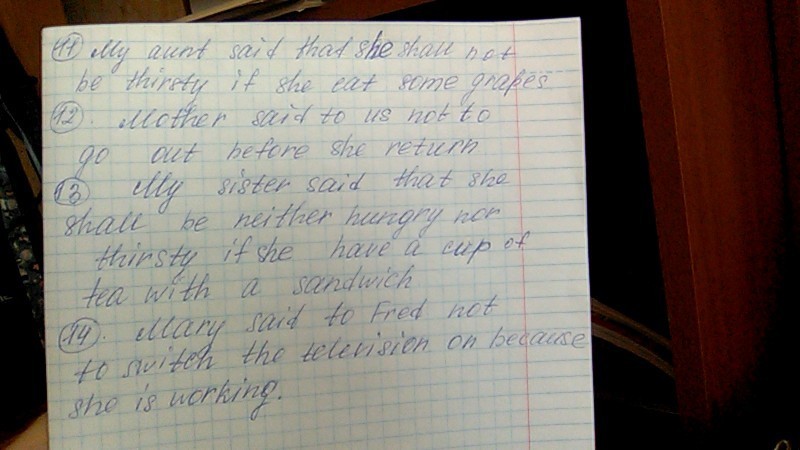 11 My aunt said that she shall not
be thirsty if she eat some grapes
12. Mother said to us not to
go out before she return
13 My sister said that she
shall be neither hungry nor
thirsty if she have a cup of
tea with a sandwich
14. Mary said to Fred not
to switch the television on because
she is working.